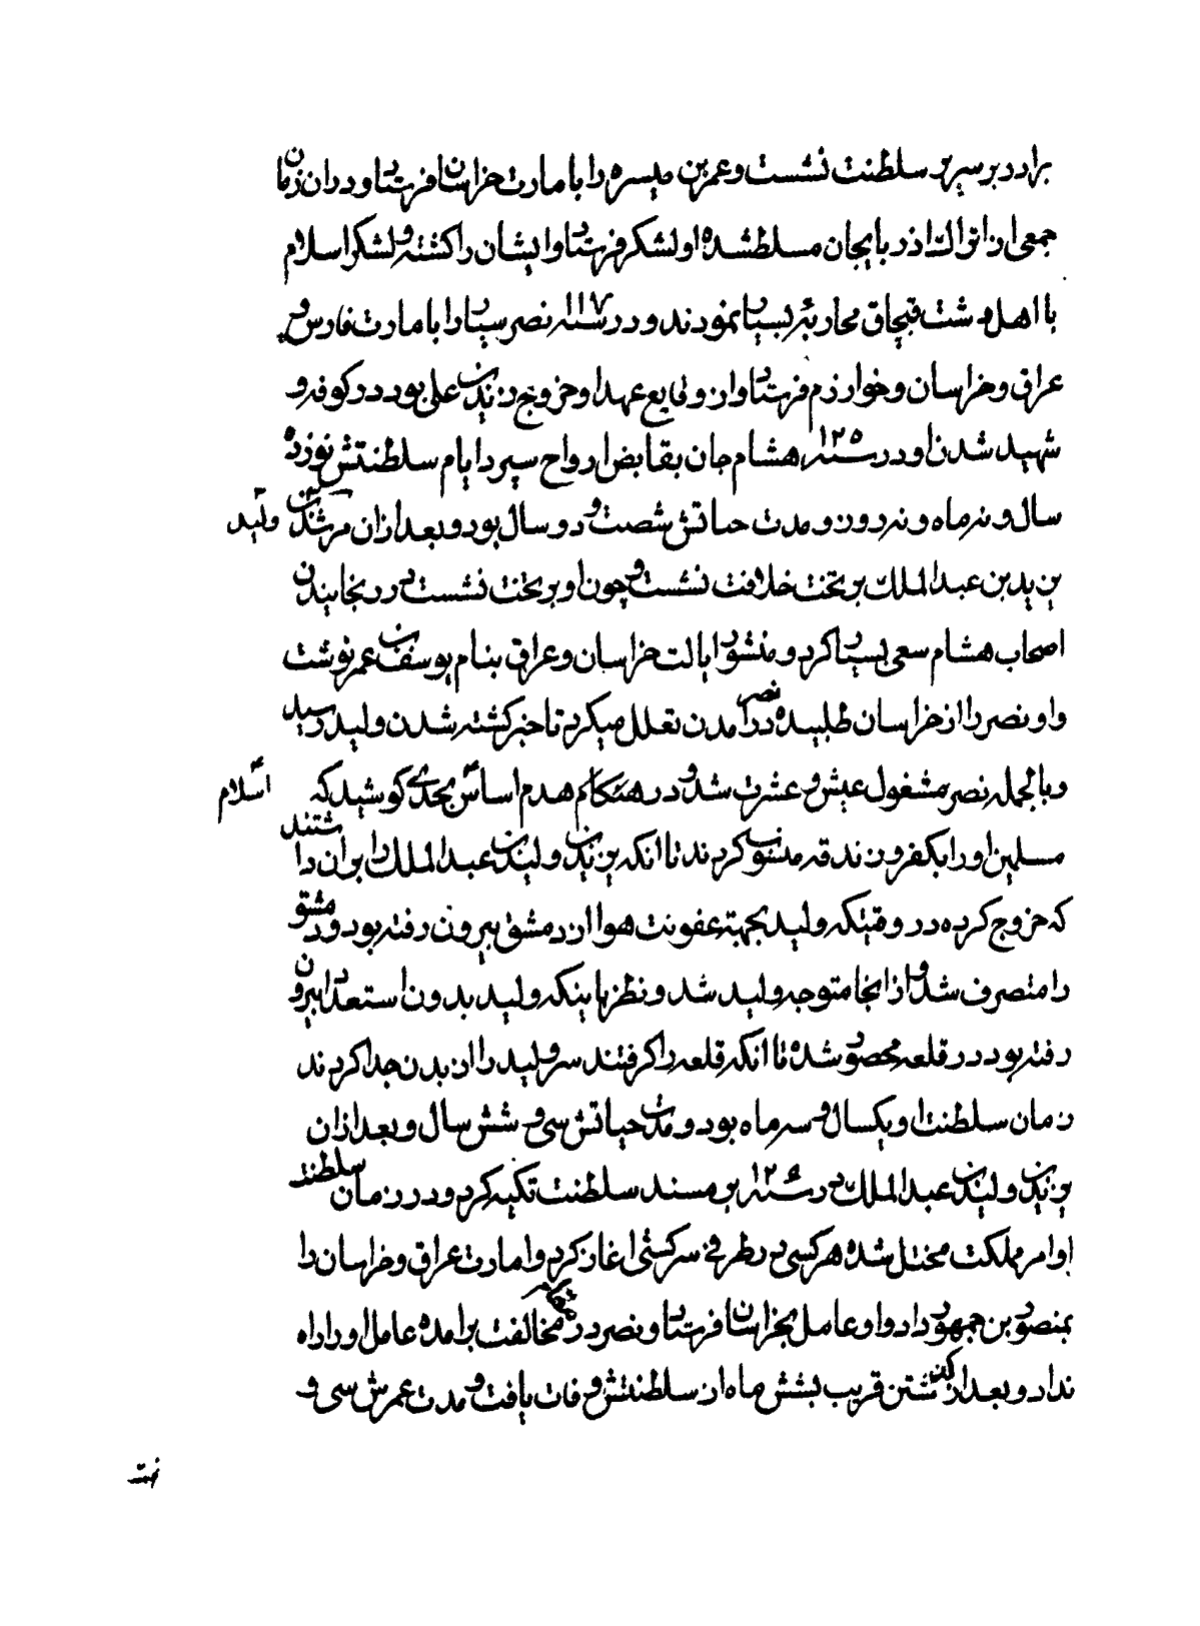 برادر بر سریر سلطنت نشست و عمر بن میسره را بامارت خراسان فرستاد و در ان زمان
جمعی از اتراک اذربایجان مسلط شده او لشکر فرستاد و ایشان را کشته و لشکر اسلام
با اهل دشت قبچاق محاربهٔ بسیار نمودند و در سنه ۱۱۷ نصر سیار را بامارت فارس و
عراق و خراسان و خوارزم فرستاد و از وقایع عهد او خروج زید بن علی بود در کوفه و
شهید شدن او در سنه ۱۲۵ هشام جان بقابض ارواح سپرد ایام سلطنتش نوزده
سال و نه ماه و نه روز و مدت حیاتش شصت و دو سال بود و بعد از ان مرشد بن ولید
بن یزید بن عبدالملک بر تخت خلافت نشست و چون او بر تخت نشست در رنجانیدن
اصحاب هشام سعی بسیار کرد و منشور ایالت خراسان و عراق بنام یوسف بن عمر نوشت
و او نصر را از خراسان طلبیده نصر در آمدن تعلل میکرد تا خبر کشته شدن ولید رسید
و بالجمله نصر مشغول عیش و عشرت شد و در هنگام هدم اساس بحدی کوشید که اسلام
مسلمین او را بکفر و زندقه منسوب کردند تا انکه یزید بن ولید بن عبدالملک را بران داشتند
که خروج کرده در وقتیکه ولید بجهة عفونت هوا از دمشق بیرون رفته بود و دمشق
را متصرف شد و از انجا متوجه ولید شد و نظر باینکه ولید بدون استعداد بیرون
رفته بود در قلعه محصور شده تا انکه قلعه را کرفتند سر ولید را از بدن جدا کردند
زمان سلطنت او یکسال و سه ماه بود و مدت حیاتش سی و شش سال و بعد از ان
یزید بن ولید بن عبدالملک در سنه ۱۲۶ بر مسند سلطنت تکیه کرد و در زمان سلطنت
او امر مملکت مختل شده هر کسی در طرفی سرکشی اغاز کرد و امارت عراق و خراسان را
بمنصور بن جمهور داد و او عامل بخراسان فرستاد و نصر در مخالفت برامده عامل او را راه
نداد و بعد از کذشتن قریب بشش ماه از سلطنتش وفات یافت و مدت عمرش سی و